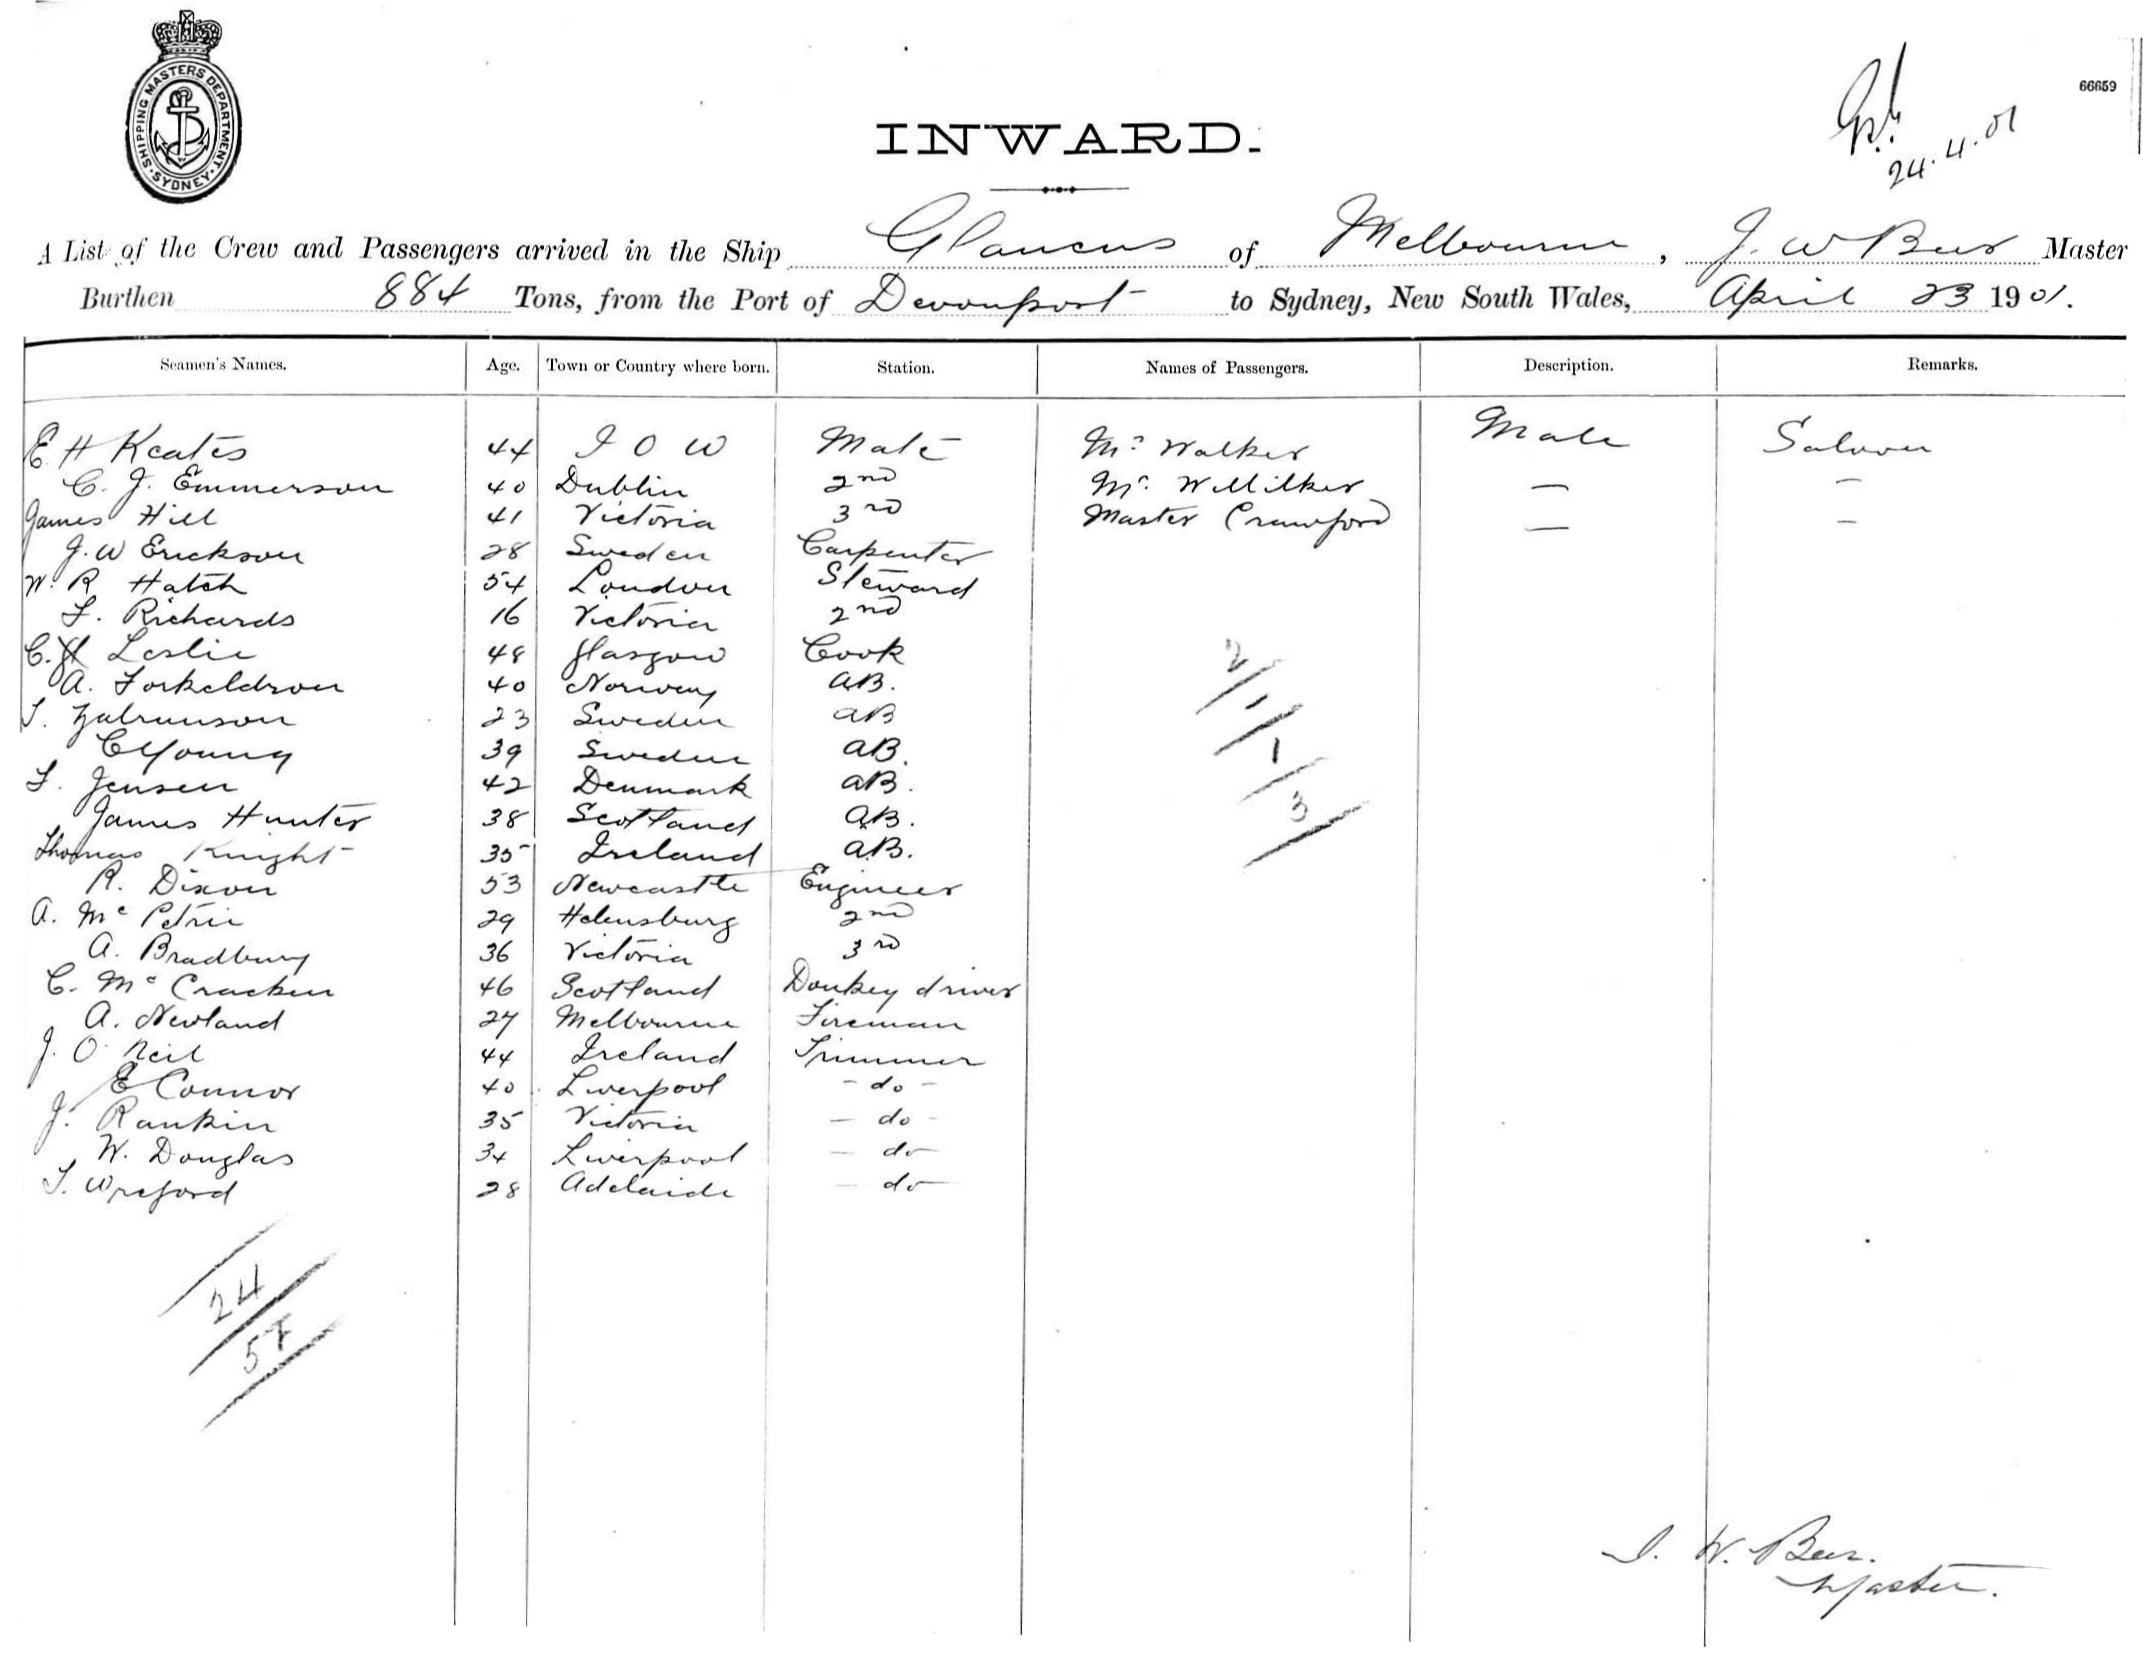 SHIPPING MASTERS DEPARTMENT · SYDNEY ·
66659
24.4.01
INWARD.
A List of the Crew and Passengers arrived in the Ship Glaucus of Melbourne, J. W Beer Master
Burthen 884 Tons, from the Port of Devonport to Sydney, New South Wales, April 23 1901.
Seamen's Names. Age. Town or Country where born. Station. Names of Passengers. Description. Remarks.
E H Keates 44 I O W Mate Mr Walker Male Saloon
C. J. Emmerson 40 Dublin 2nd Mr. — —
James Hill 41 Victoria 3rd Master Crawford — —
J. W Erickson 28 Sweden Carpenter
W. R Hatch 54 London Steward
F. Richards 16 Victoria 2nd
C. Leslie 48 Glasgow Cook
A. 40 Norway AB.
23 Sweden AB
C Young 39 Sweden AB.
F. Jensen 42 Denmark AB.
James Hunter 38 Scotland AB.
Thomas Knight 35 Ireland AB.
R. Dixon 53 Newcastle Engineer
A. Mc Petrie 29 Helensburg 2nd
A. Bradbury 36 Victoria 3rd
C. Mc Cracken 46 Scotland Donkey driver
A. Newland 27 Melbourne Fireman
J. O'Neil 44 Ireland Trimmer
E Connor 40 Liverpool - do -
J. Rankin 35 Victoria - do -
W. Douglas 34 Liverpool - do
T. Wreford 28 Adelaide - do
2
1
1
3
24
57
J. W. Beer.
Master.